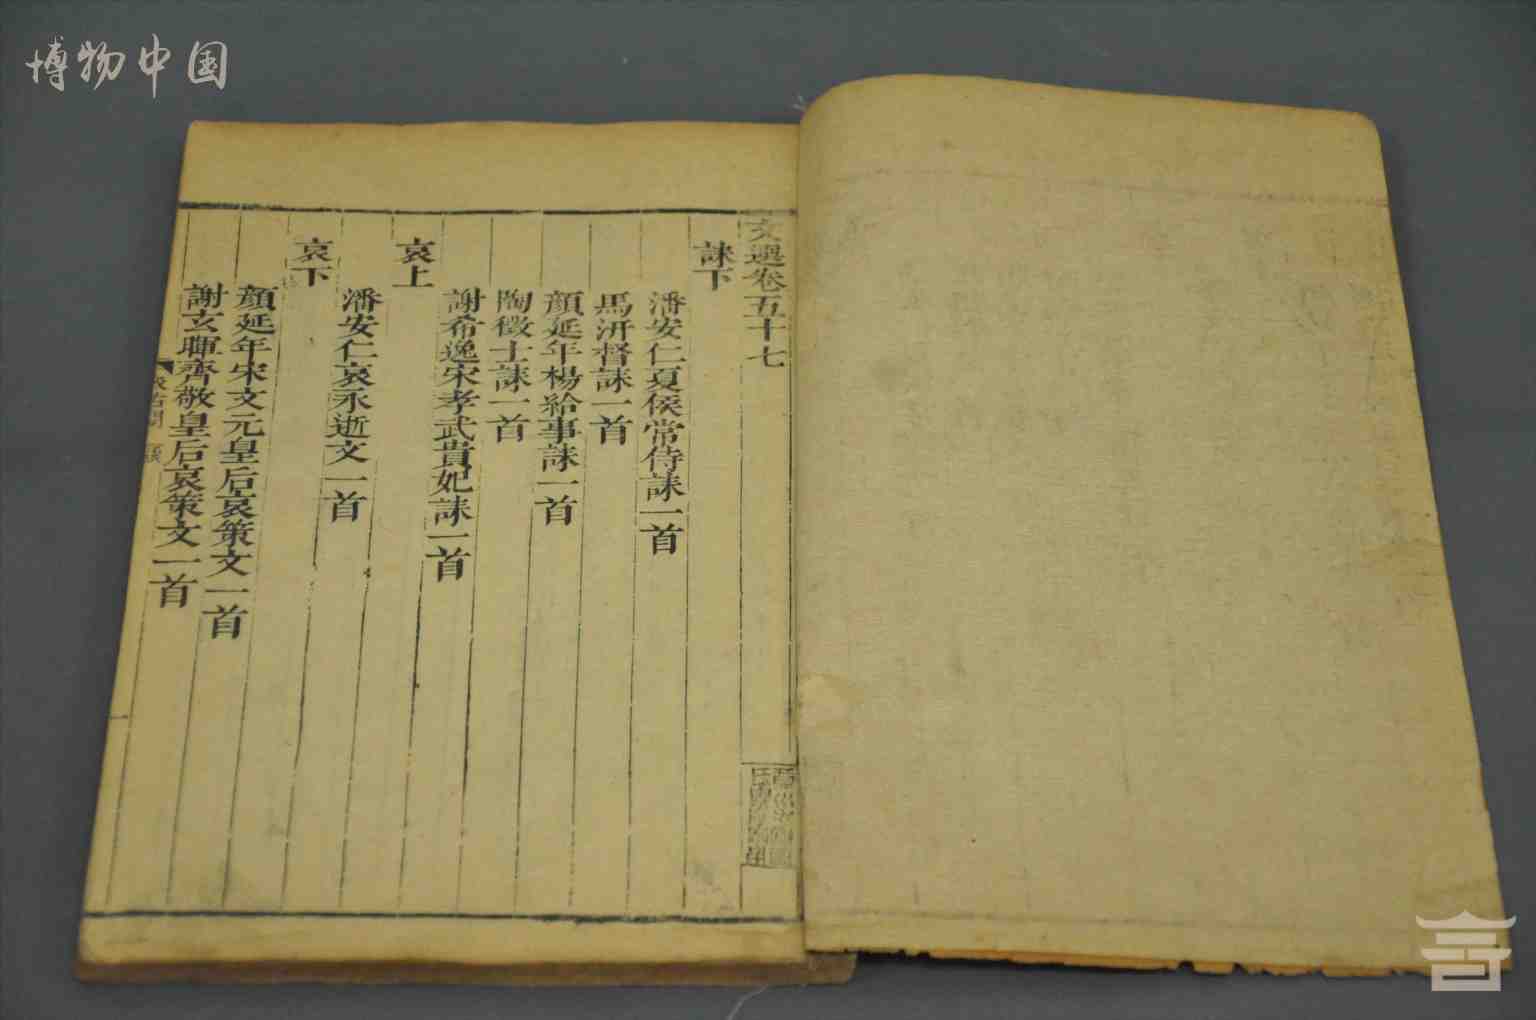 博物中国
文選卷五十七
誄下
潘安仁夏侯常侍誄一首
馬汧督誄一首
顔延年楊給事誄一首
陶徵士誄一首
謝希逸宋孝武貴妃誄一首
哀上
潘安仁哀永逝文一首
哀下
顔延年宋文元皇后哀策文一首
謝玄暉齊敬皇后哀策文一首